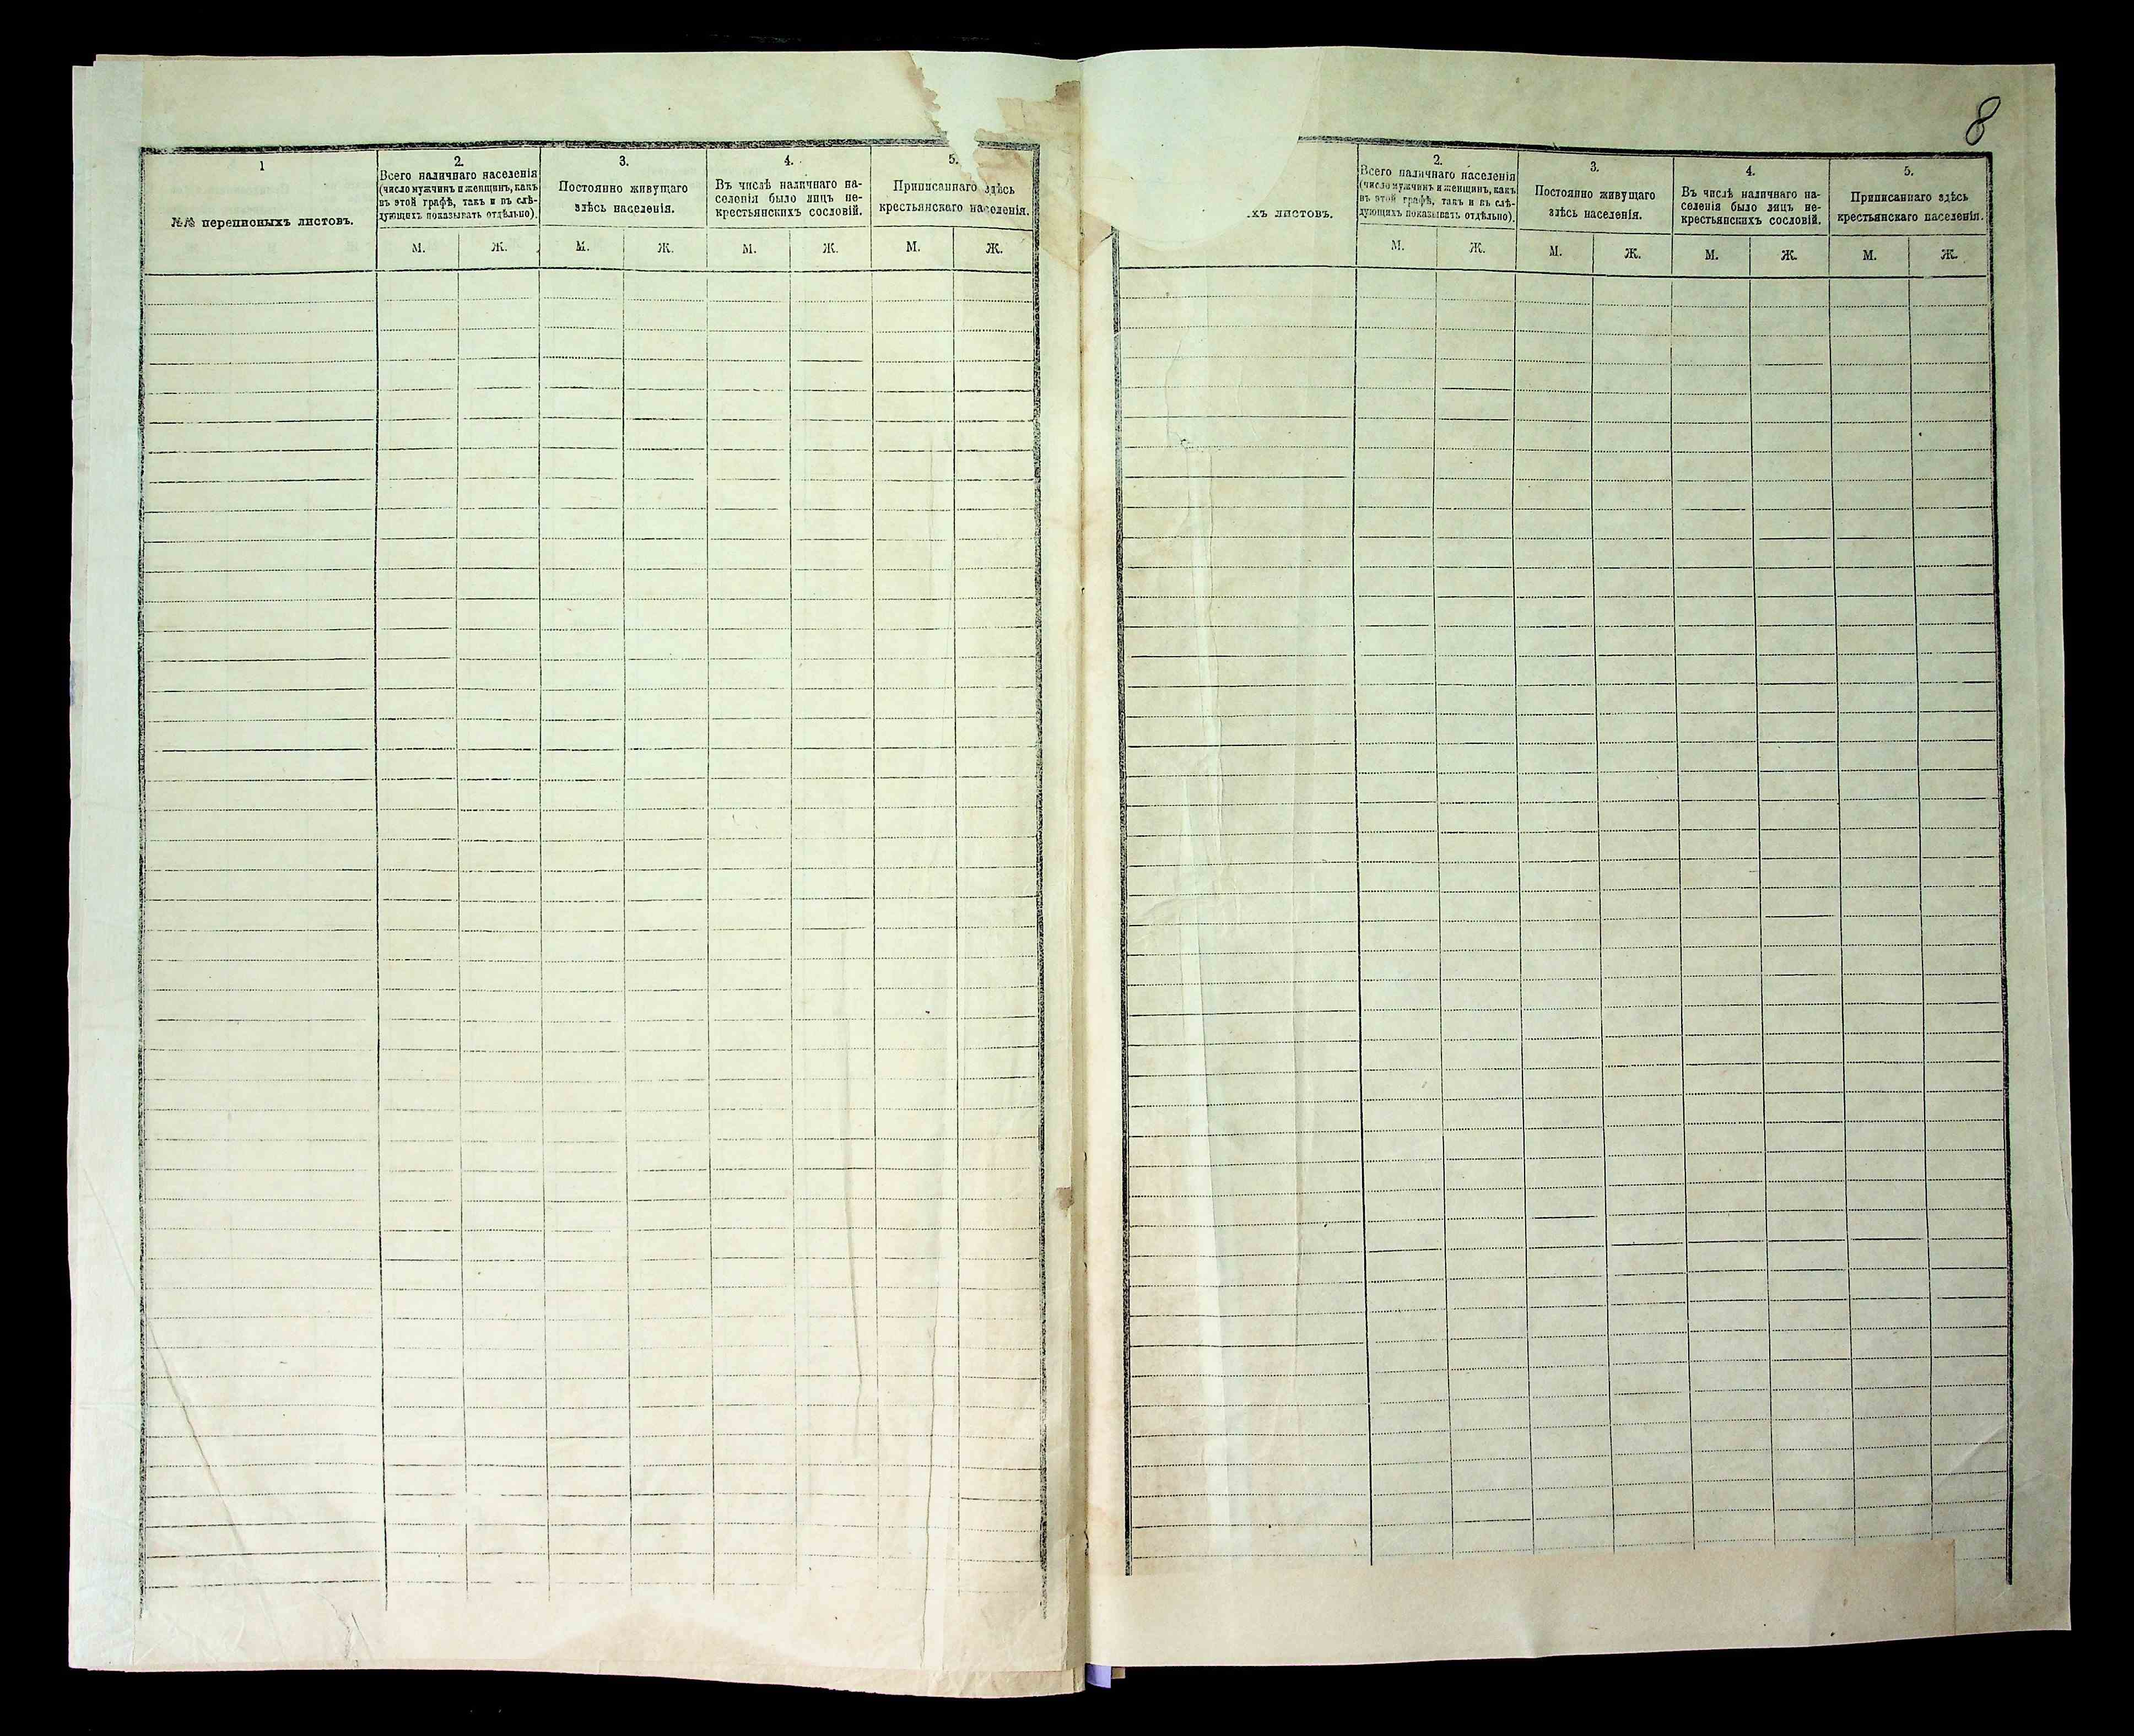 1
№№ переписныхъ листовъ.
2.
Всего наличнаго населенія
(число мужчинъ и женщинъ, какъ
въ этой графѣ, такъ и въ слѣ-
дующихъ показывать отдѣльно).
3.
Постоянно живущаго
здѣсь населенія.
4.
Въ числѣ наличнаго на-
селенія было лицъ не-
крестьянскихъ сословій.
5.
Приписаннаго здѣсь
крестьянскаго населенія.
М. Ж. М. Ж. М. Ж. М. Ж.
8
хъ листовъ.
2.
Всего наличнаго населенія
(число мужчинъ и женщинъ, какъ
въ этой графѣ, такъ и въ слѣ-
дующихъ показывать отдѣльно).
3.
Постоянно живущаго
здѣсь населенія.
4.
Въ числѣ наличнаго на-
селенія было лицъ не-
крестьянскихъ сословій.
5.
Приписаннаго здѣсь
крестьянскаго населенія.
М. Ж. М. Ж. М. Ж. М. Ж.